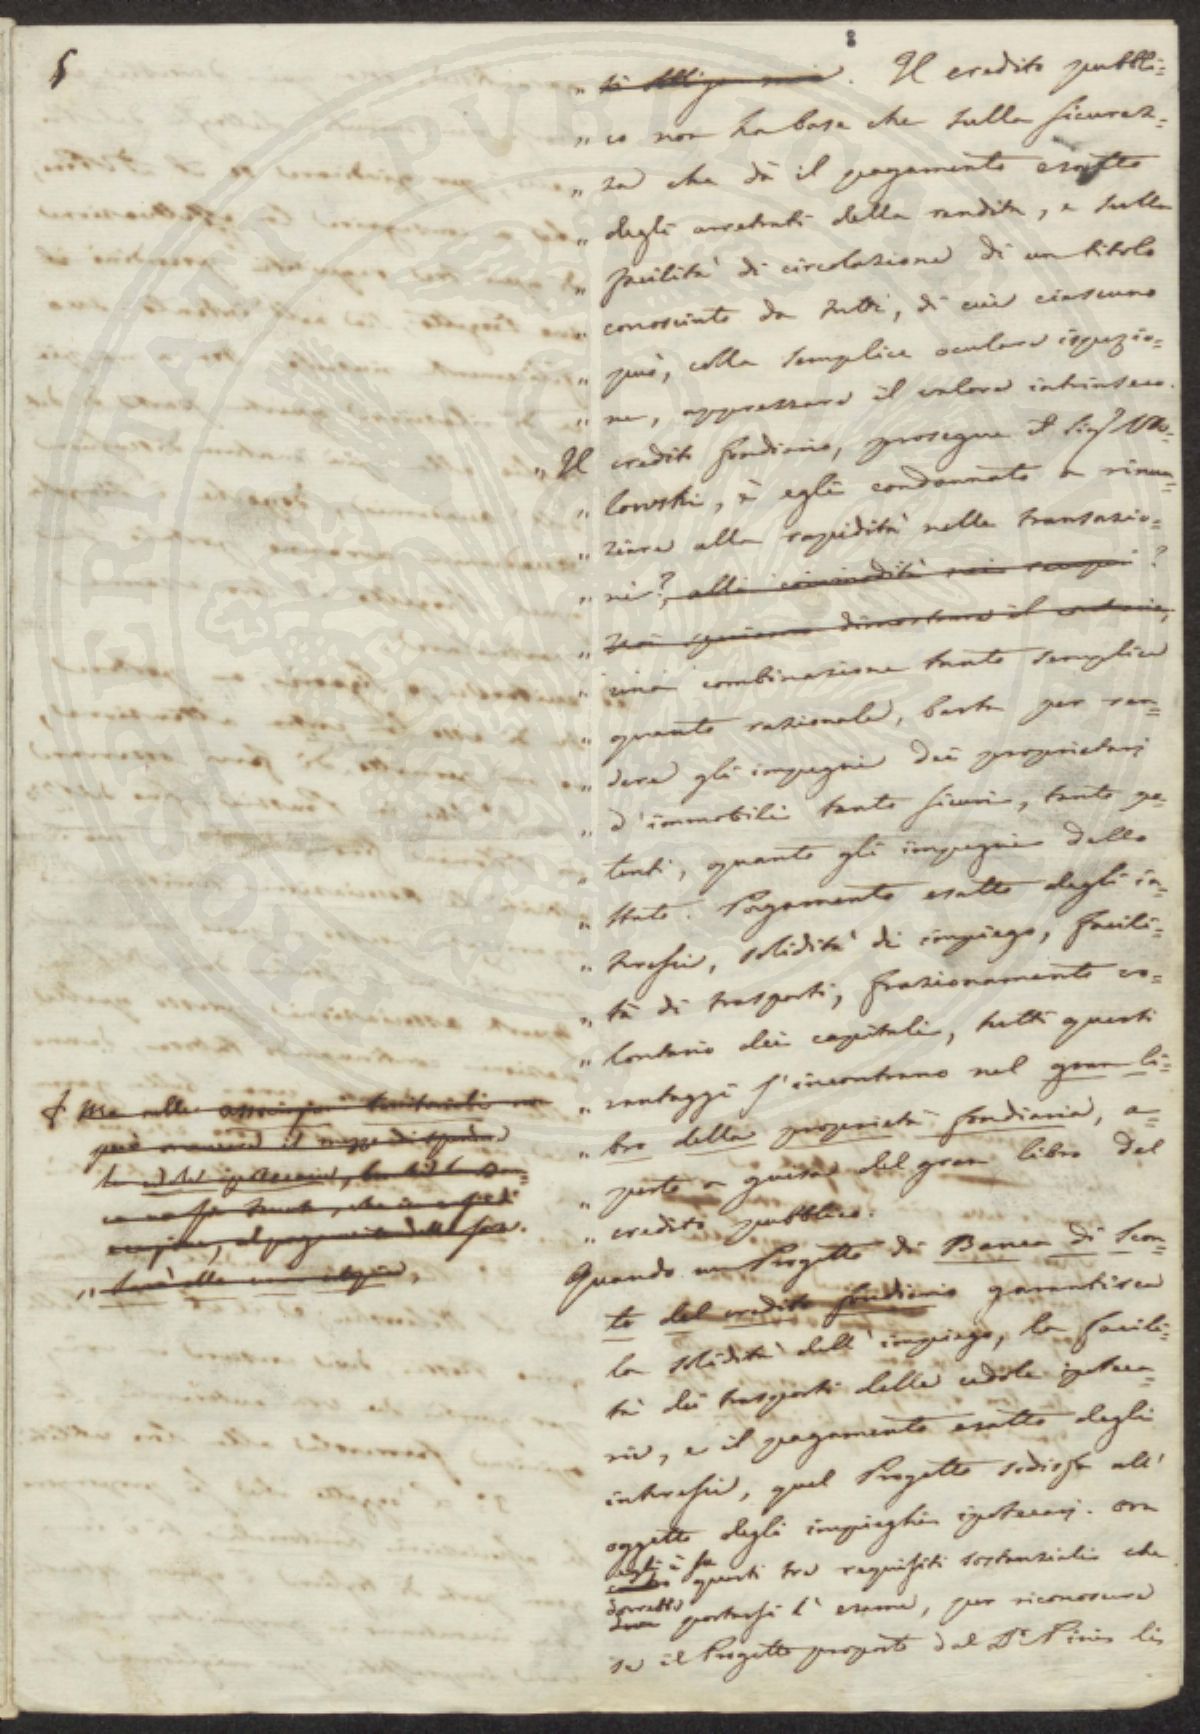 8
" Il credito pubbli=
" co non ha base che sulla sicurez=
" za che dà il pagamento esatto
" degli arretrati della rendita, e sulla
" facilità di circolazione di un titolo
" conosciuto da tutti, di cui ciascuno
" può, colla semplice oculare ispezio=
" ne, apprezzare il valore intrinseco.
" Il credito fondiario, prosegue il Sig.r Wo=
" lowski, è egli condannato a rinun=
" ziare alla rapidità nelle transazio=
" ni? alla commodità ?
" il contrario,
" una combinazione tanto semplice
" quanto razionale, basta per ren=
" dere gli impegni dei proprietarj
" d'immobili tanto sicuri, tanto po=
" tenti, quanto gli impegni dello
" Stato. Pagamento esatto degli in=
" teressi, solidità di impiego, facili=
" tà di trasporti, frazionamento vo=
" lontario dei capitali, tutti questi
" vantaggi s'incontrano nel gran li=
" bro della proprietà fondiaria, a=
" perto a guisa del gran libro del
" credito pubblico.
Quando un Progetto di Banca di Scon=
to del credito fondiario garantisca
la solidità dell'impiego, la facili=
tà dei trasporti delle cedole ipoteca=
rie, e il pagamento esatto degli
interessi, quel Progetto sodisfa all'
oggetto degli impieghi ipotecarj. Ora
egli è su
questi tre requisiti sostanziali che
dovrebbe
portarsi l'esame, per riconoscere
se il Progetto proposto dal D.r Pinis
Ma nelle associazioni territoriali
può